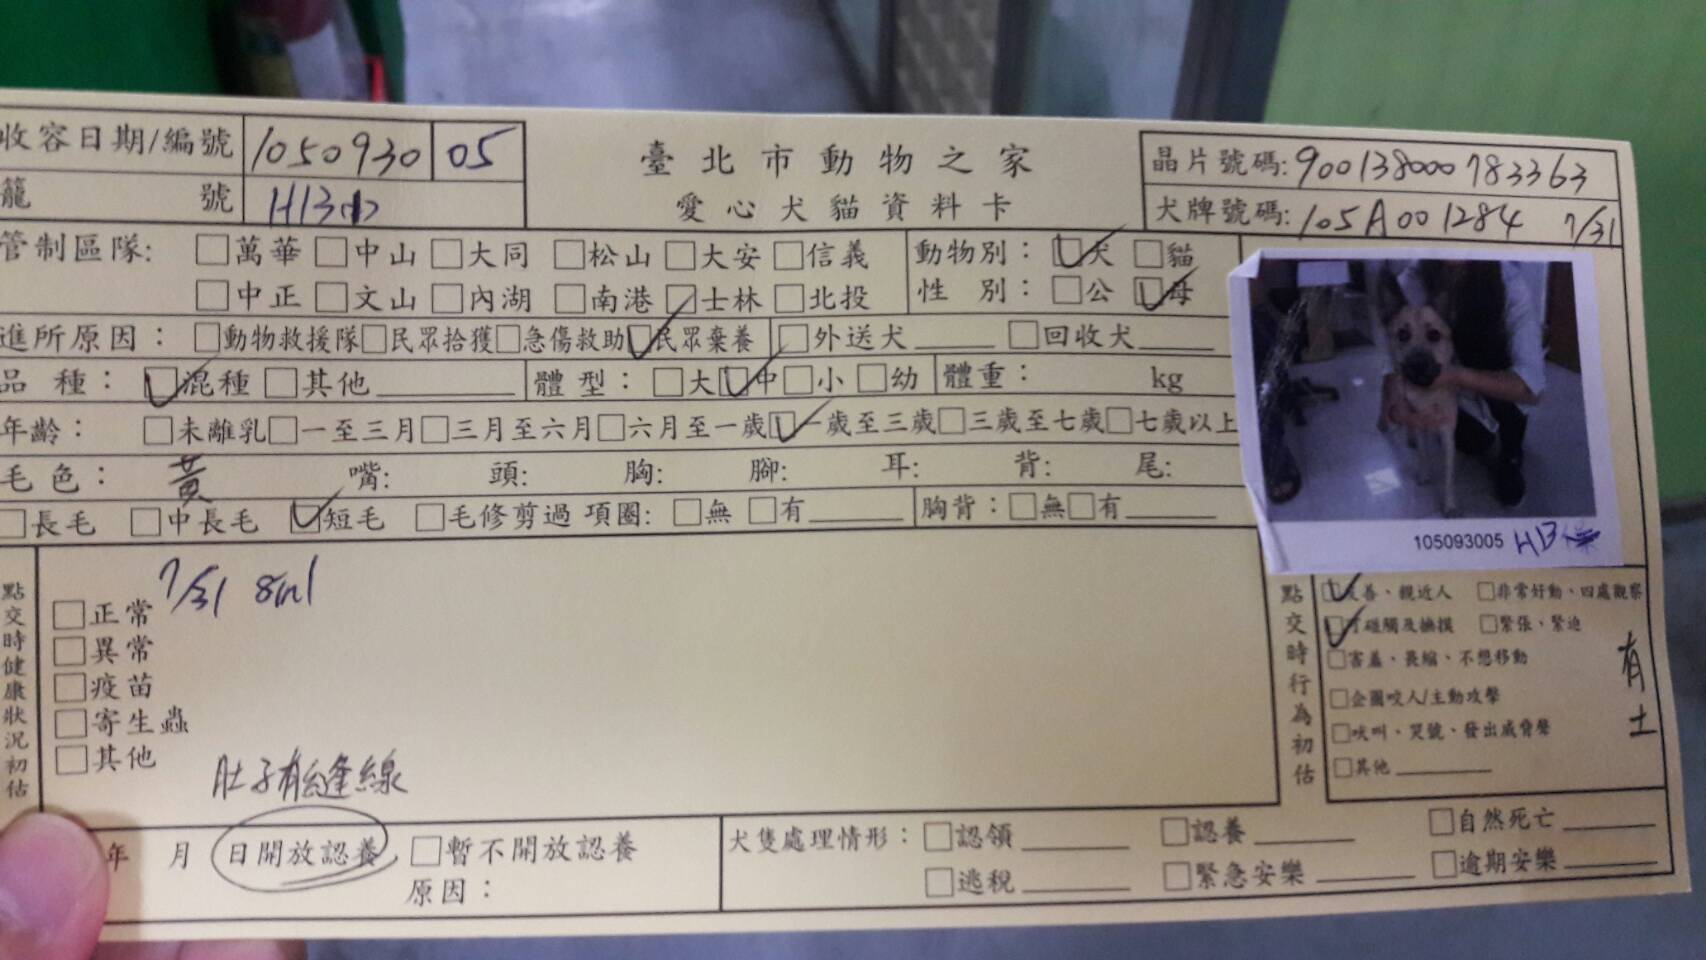 收容日期/編號 1050930 05
籠 號 H13中
臺北市動物之家
愛心犬貓資料卡
晶片號碼:900138000783363
犬牌號碼:105A001284 7/31
管制區隊: □萬華 □中山 □大同 □松山 □大安 □信義
□中正 □文山 □內湖 □南港 ☑士林 □北投
動物別: ☑犬 □貓
性 別: □公 ☑母
進所原因: □動物救援隊 □民眾拾獲 □急傷救助 ☑民眾棄養 □外送犬____ □回收犬____
品 種: ☑混種 □其他____ 體 型: □大 ☑中 □小 □幼 體重: kg
年齡: □未離乳 □一至三月 □三月至六月 □六月至一歲 ☑一歲至三歲 □三歲至七歲 □七歲以上
毛色: 黃 嘴: 頭: 胸: 腳: 耳: 背: 尾:
□長毛 □中長毛 ☑短毛 □毛修剪過 項圈: □無 □有____ 胸背: □無 □有____
105093005 H13
點交時健康狀況初估
7/31
□正常
□異常
□疫苗
□寄生蟲
□其他
肚子有縫線
點交時行為初估
☑友善、親近人 □非常好動、四處觀察
☑可碰觸及撫摸 □緊張、緊迫
□害羞、畏縮、不想移動
□企圖咬人/主動攻擊
□吠叫、哭號、發出威脅聲
□其他____
有
土
年 月 日開放認養 □暫不開放認養
原因:
犬隻處理情形: □認領____ □認養____ □自然死亡____
□逃稅____ □緊急安樂____ □逾期安樂____